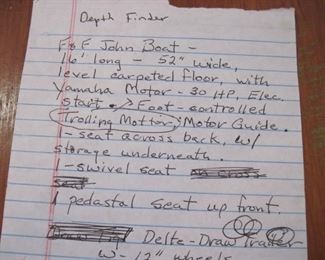 Depth Finder
F&F John Boat -
16' long - 52" wide,
level carpeted floor, with
Yamaha Motor - 30 HP, Elec.
start. → Foot-controlled
Trolling Motter, Motor Guide.
- seat across back, w/
storage underneath.
- swivel seat
1 pedastal seat up front.
Delte-Draw Trailer
w- 12" wheels